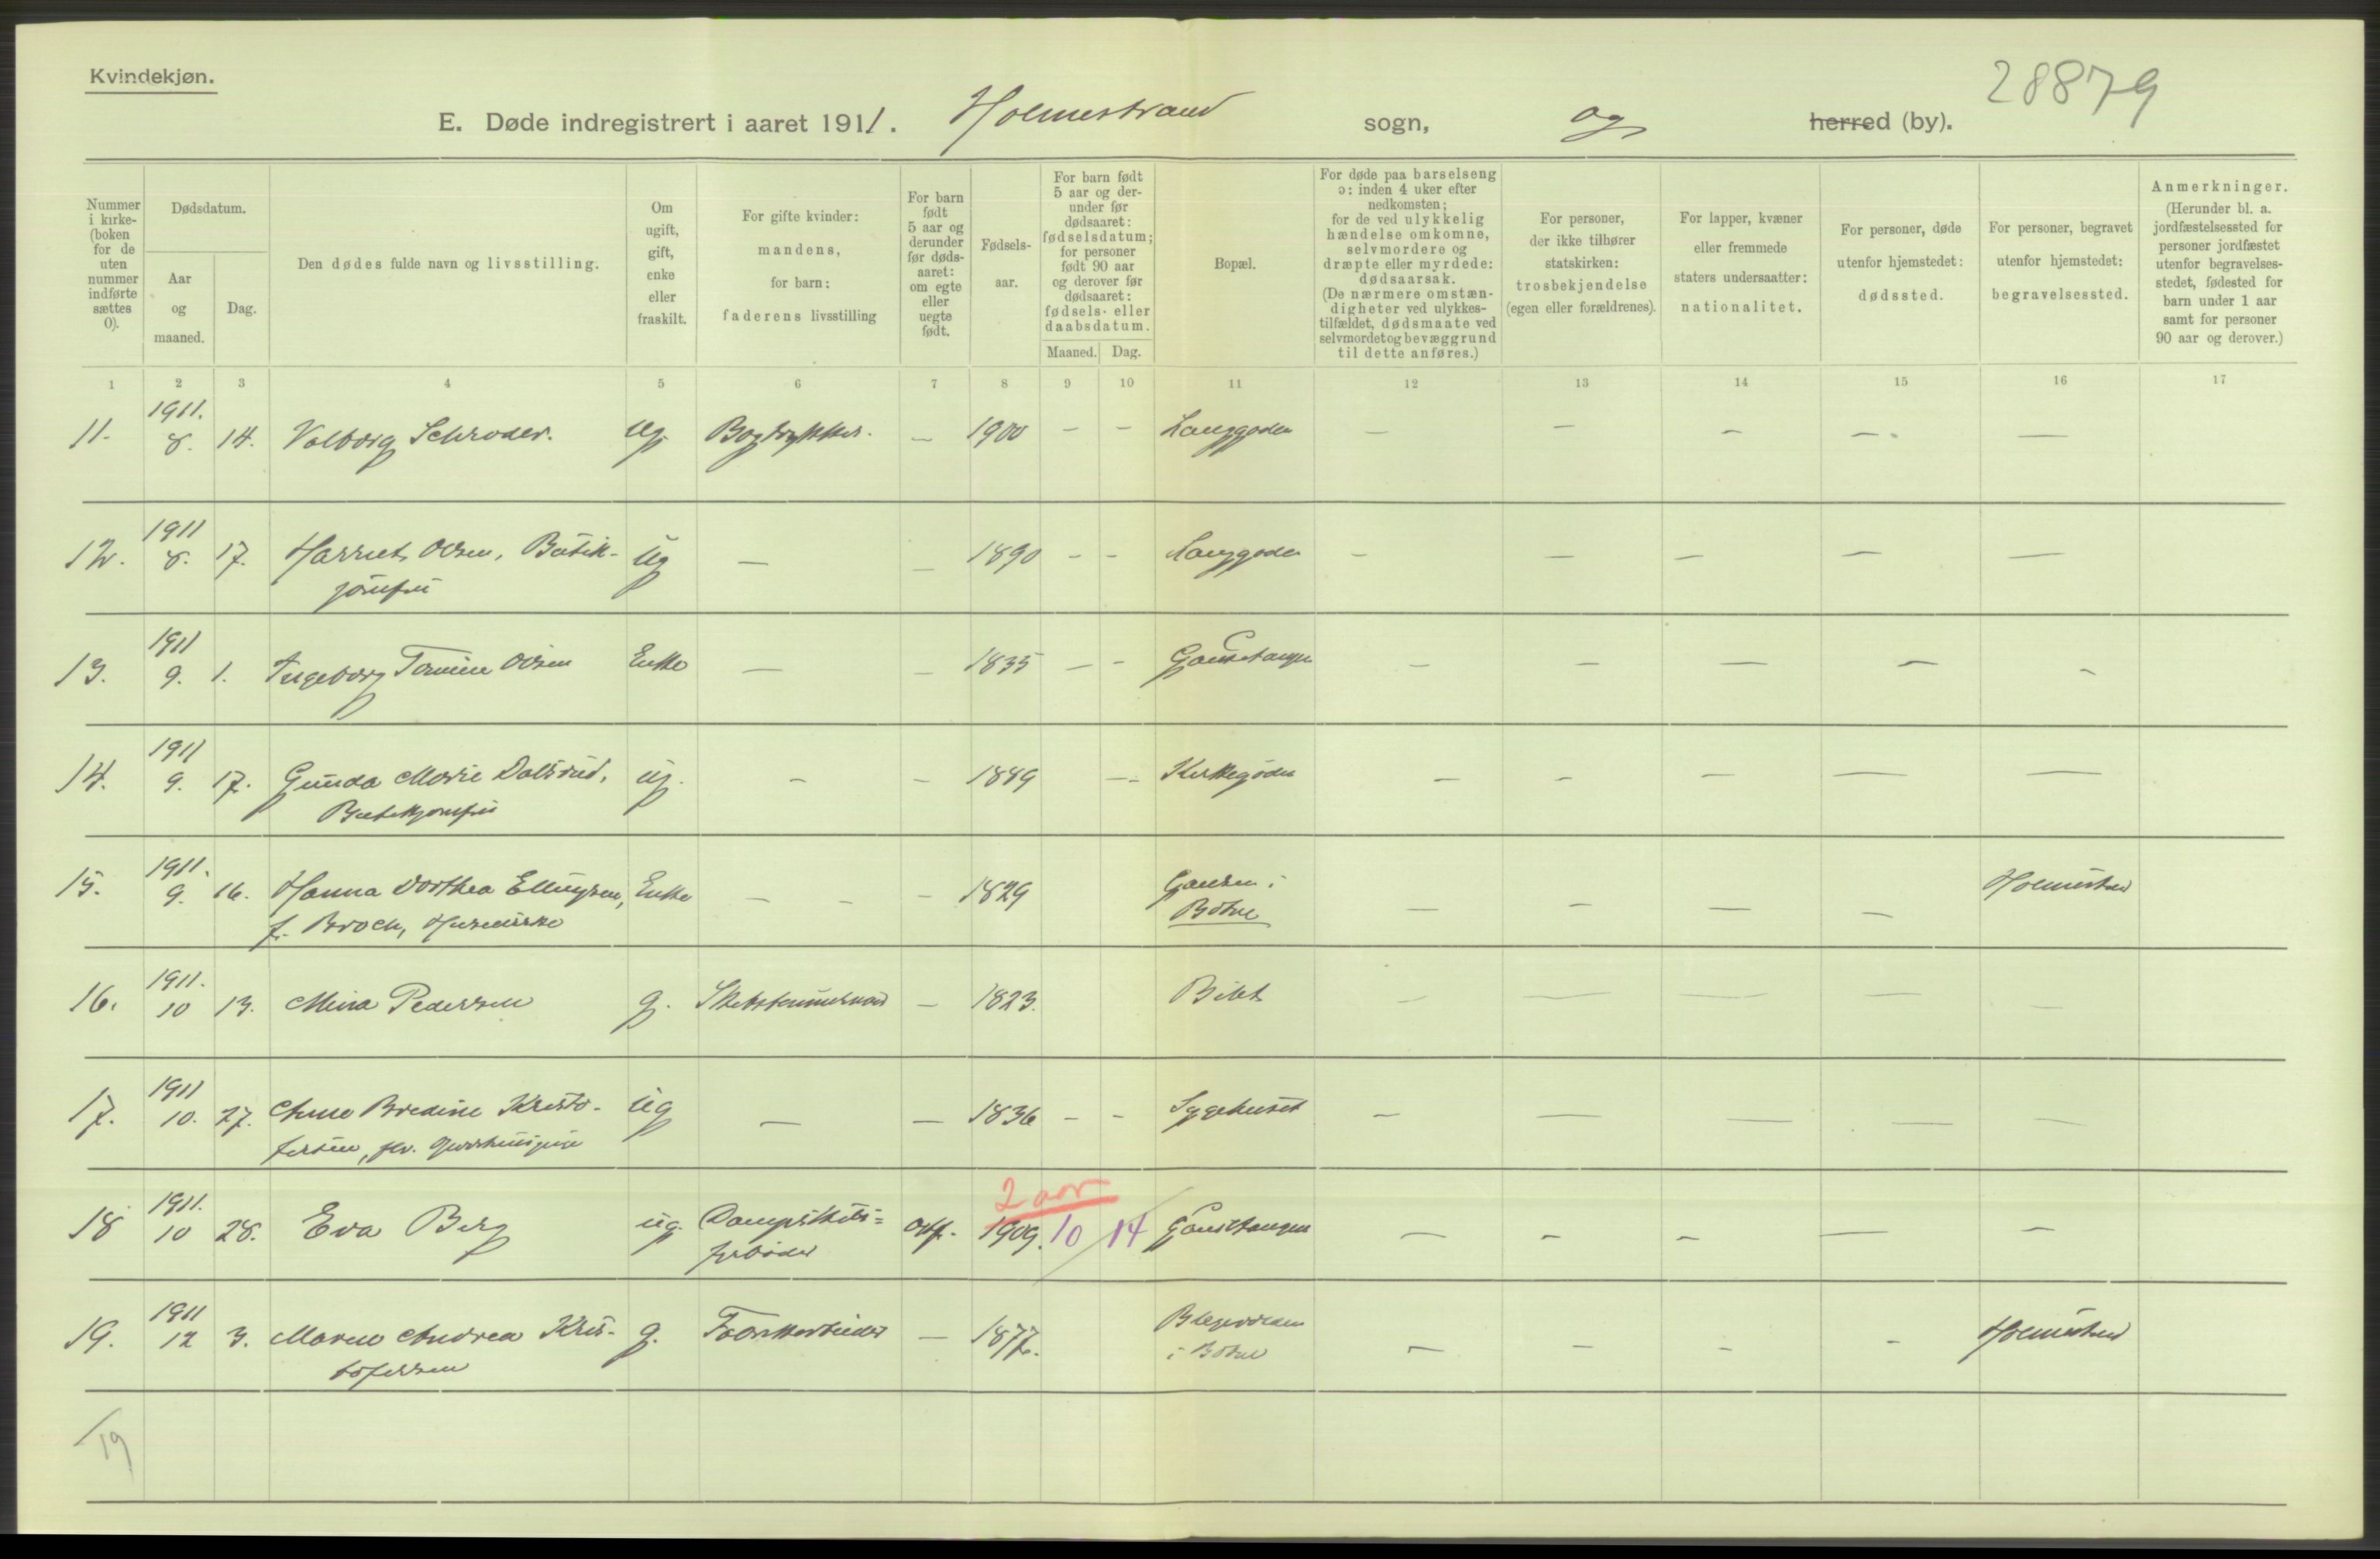 Kvindekjøn.
28879
E. Døde indregistrert i aaret 1911. Holmestrand sogn, og herred (by).
Nummer i kirke- (boken for de uten nummer indførte sættes 0).
Dødsdatum.
Aar og maaned.
Dag.
Den dødes fulde navn og livsstilling.
Om ugift, gift, enke eller fraskilt.
For gifte kvinder: mandens, for barn: faderens livsstilling
For barn født 5 aar og derunder før dødsaaret: om egte eller uegte født.
Fødsels- aar.
For barn født 5 aar og der- under før dødsaaret: fødselsdatum; for personer født 90 aar og derover før dødsaaret: fødsels- eller daabsdatum.
Maaned. Dag.
Bopæl.
For døde paa barselseng ɔ: inden 4 uker efter nedkomsten; for de ved ulykkelig hændelse omkomne, selvmordere og dræpte eller myrdede: dødsaarsak. (De nærmere omstæn- digheter ved ulykkes- tilfældet, dødsmaate ved selvmordet og bevæggrund til dette anføres.)
For personer, der ikke tilhører statskirken: trosbekjendelse (egen eller forældrenes).
For lapper, kvæner eller fremmede staters undersaatter: nationalitet.
For personer, døde utenfor hjemstedet: dødssted.
For personer, begravet utenfor hjemstedet: begravelsessted.
Anmerkninger. (Herunder bl. a. jordfæstelsessted for personer jordfæstet utenfor begravelses- stedet, fødested for barn under 1 aar samt for personer 90 aar og derover.)
1 2 3 4 5 6 7 8 9 10 11 12 13 14 15 16 17
1911.
11. 8. 14. Valborg Schrøder. ug. Bogtrykker. — 1900 — — Langgaden — — — — —
1911
12. 8. 17. Harriet Olsen, Butik- ug — — 1890 — — Langgaden — — — — —
jomfru
1911
13. 9. 1. Ingeborg Tomine Olsen Enke — — 1835 — — Gausetangen — — — — —
1911
14. 9. 17. Gunda Marie Dalsrud, ug. — — 1849 — — Kirkegaden — — — — —
Butikjomfru
1911.
15. 9. 16. Hanna Dorthea Ellingsen, Enke — — — 1829 Gausen i — — — — Holmestrand
f. Broch, Huseierske Botne
1911.
16. 10 13. Mina Pedersen g. Skibstømmermand — 1823. Bilet — — — — —
1911
17. 10. 27. Anne Bredine Kristo- ug — — 1836 — — Sygehuset — — — — —
fersen, fhv.
1911. 2 aar
18 10 28. Eva Berg ug. Dampskibs= egt. 1909. 10 14 Gausetangen — — — — —
fyrbøder
1911
19. 12 3. Maren Andrea Kris- g. — 1877. — — — — Holmestrand
tofersen i Botne
19